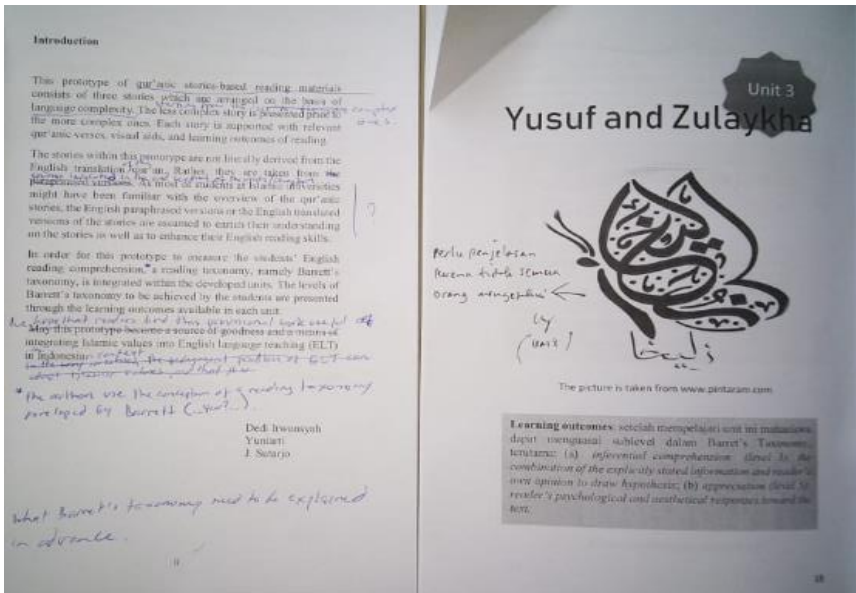 Introduction
This prototype of qur'anic stories-based reading materials
consists of three stories which are arranged on the basis of
language complexity. The less complex story is presented prior to
the more complex ones. Each story is supported with relevant
qur'anic verses, visual aids, and learning outcomes of reading.
The stories within this prototype are not literally derived from the
English translation qur'an. Rather, they are taken from the
paraphrased versions. As most of students at Islamic universities
might have been familiar with the overview of the qur'anic
stories, the English paraphrased versions or the English translated
versions of the stories are assumed to enrich their understanding
on the stories as well as to enhance their English reading skills.
?
In order for this prototype to measure the students' English
reading comprehension, a reading taxonomy, namely Barrett's
taxonomy, is integrated within the developed units. The levels of
Barrett's taxonomy to be achieved by the students are presented
through the learning outcomes available in each unit.
We hope that readers find this provisional work useful
May this prototype become a source of goodness and a means of
integrating Islamic values into English language teaching (ELT)
in Indonesian context
* the authors use the conception of reading taxonomy
developed by Barrett
Dedi Irwansyah
Yuniarti
J. Sutarjo
What Barrett's taxonomy need to be explained
in advance.
ii
Unit 3
Yusuf and Zulaykha
Perlu penjelasan
karena tidak semua
orang mengetahui
زليخا
The picture is taken from www.pintaram.com
Learning outcomes: setelah mempelajari unit ini mahasiswa
dapat menguasai sublevel dalam Barret's Taxonomy,
terutama: (a) inferential comprehension (level 3): the
combination of the explicitly stated information and reader's
own opinion to draw hypothesis; (b) appreciation (level 5):
reader's psychological and aesthetical responses toward the
text.
18